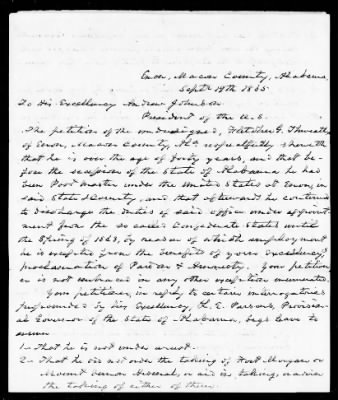 Macon County, Alabama,
Sept 19th 1865
To His Excellency Andrew Johnson
President of the U.S.
The petition of the undersigned, Fletcher G. Threatt
of Macon County, Ala. respectfully sheweth
that he is over the age of forty years, and that be-
fore the secession of the State of Alabama he had
been Post master under the United States at in
said State & County, and that afterwards he continued
to discharge the duties of said office under appoint-
ment from the so called Confederate States until
the Spring of 1863, by reason of which employment
he is excepted from the benefits of your Excellency's
proclamation of Pardon & Amnesty. Your petition-
er is not embraced in any other exception enumerated.
Your petitioner, in reply to certain interrogatories
propounded by his Excellency, L. E. Parsons, Provision-
al Governor of the State of Alabama, begs leave to
answer
1 - That he is not under arrest.
2 - That he did not order the taking of Fort Morgan or
Mount Vernon Arsenal, or aid in, taking, or advise
the taking of either of them.